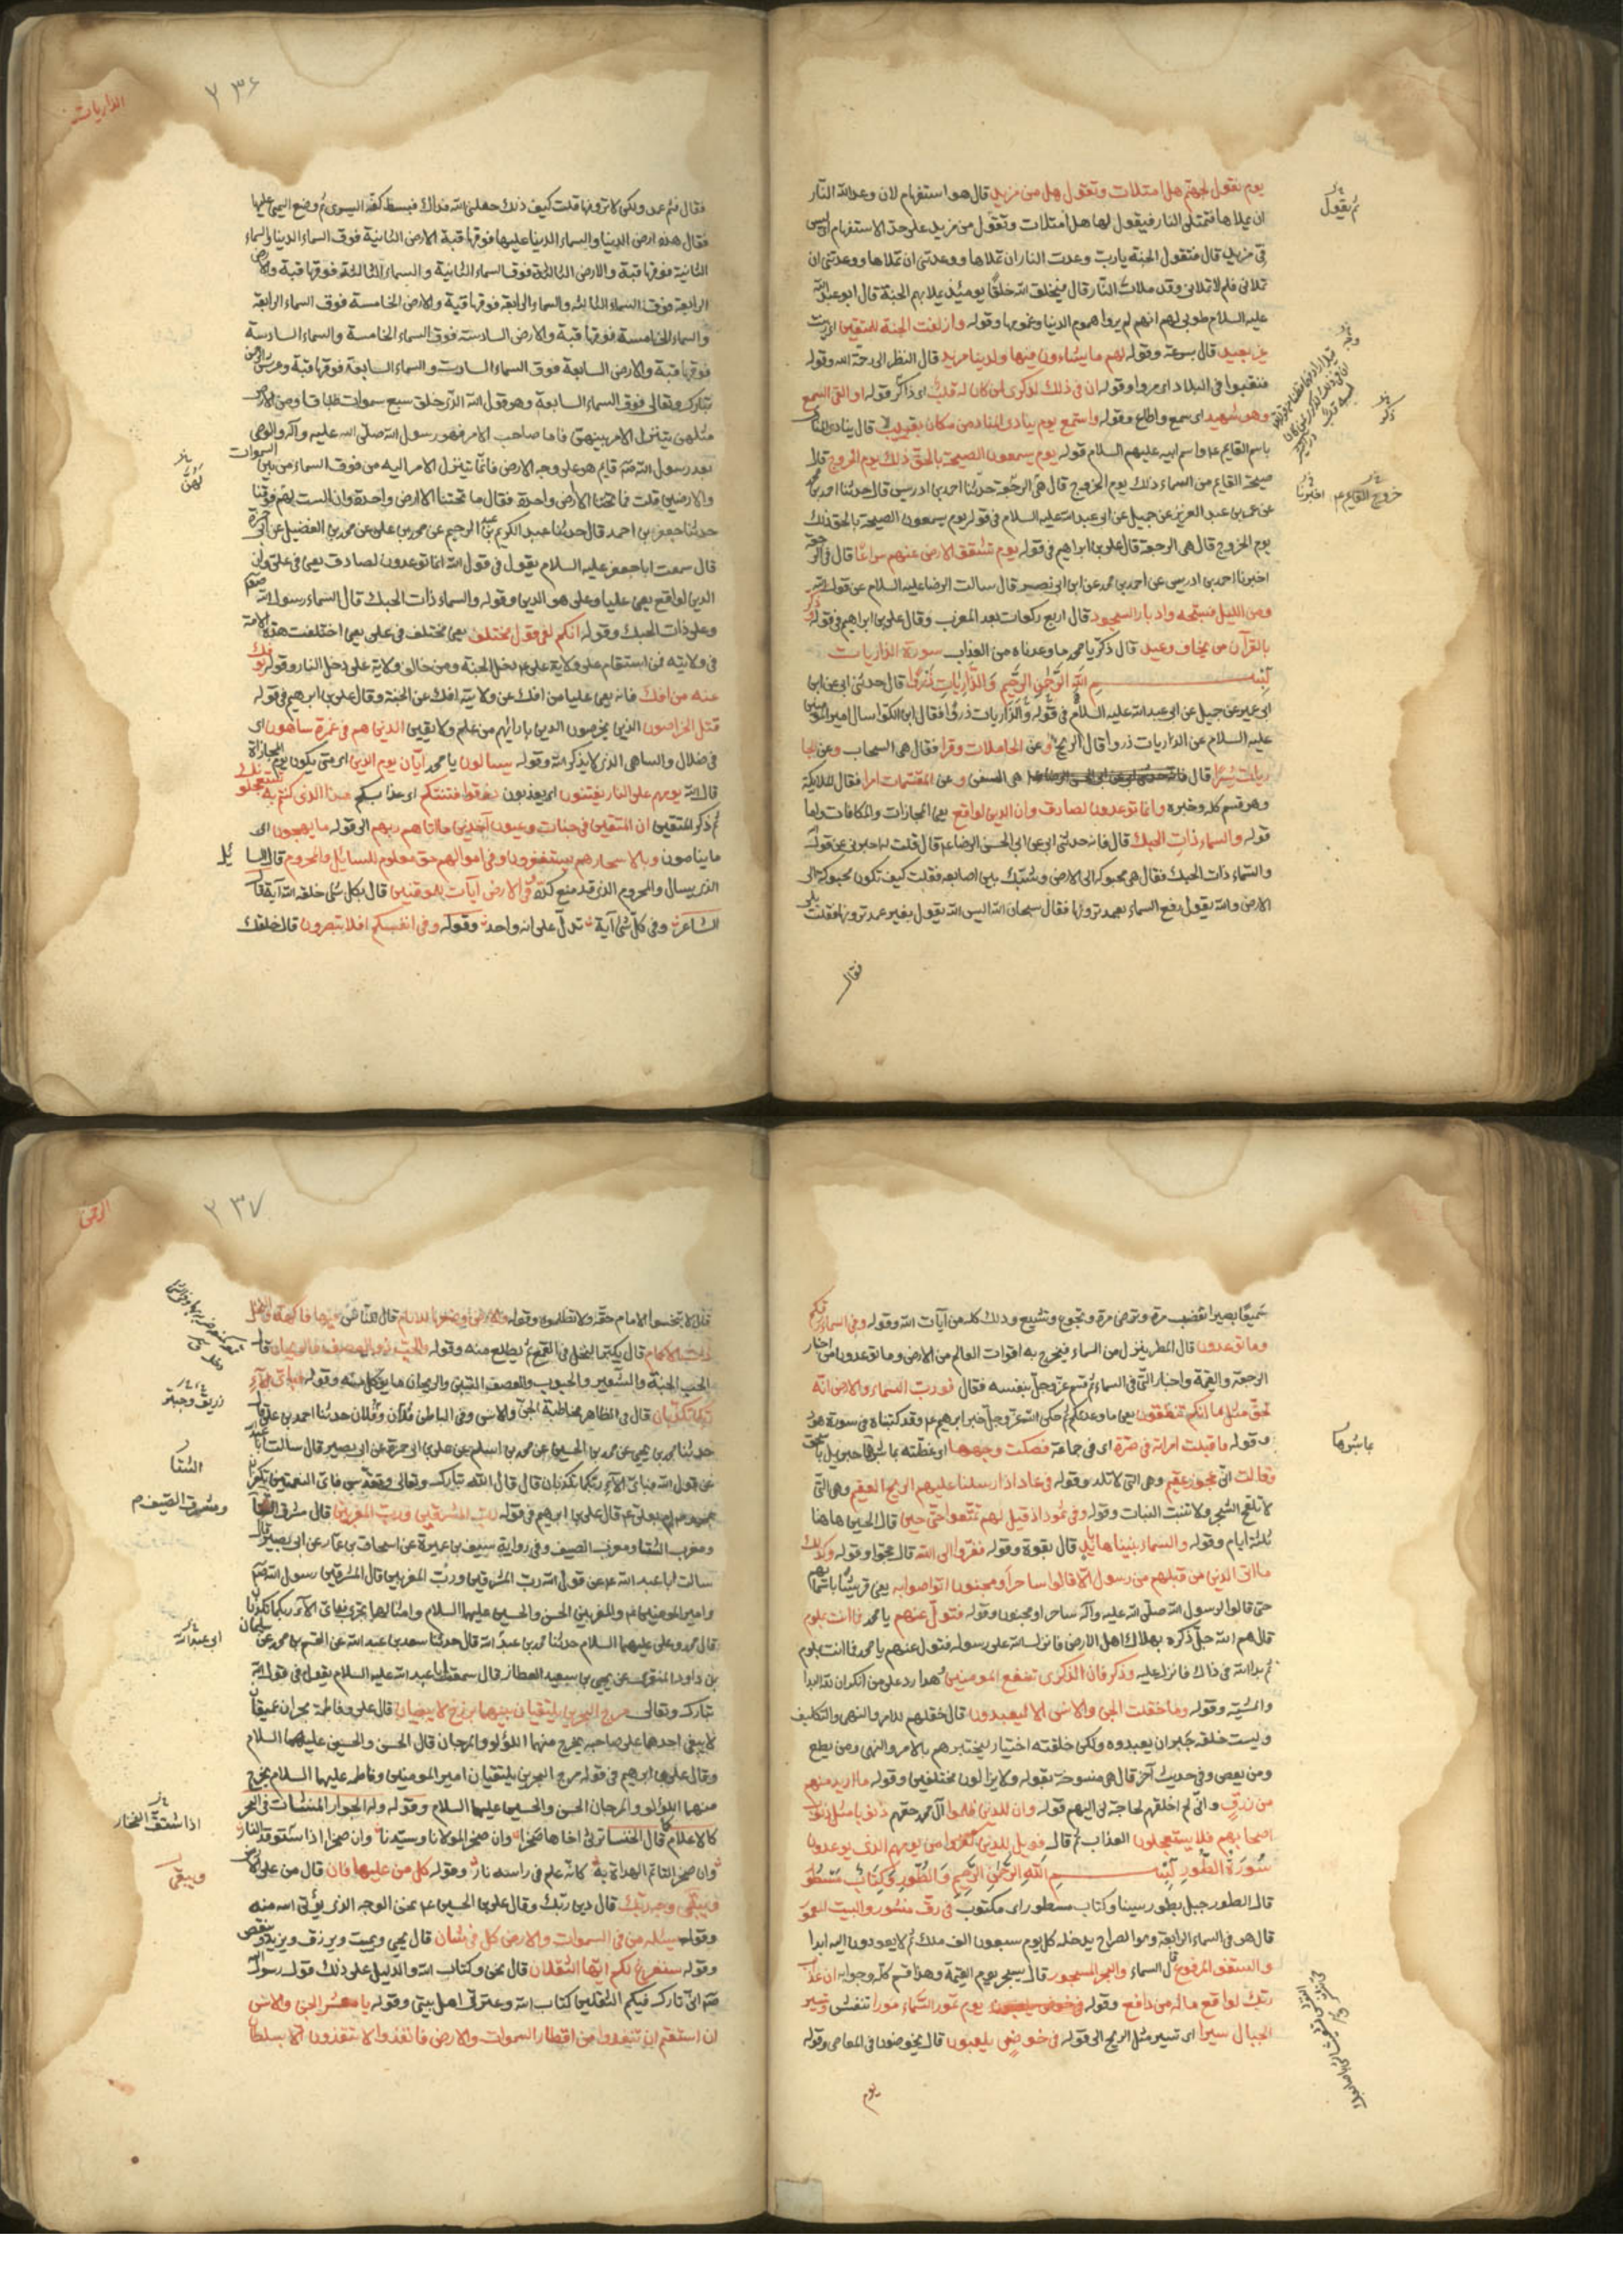 يوم نقول لجهنم هل امتلات وتقول هل من مزيد قال هو استفهام لان وعد الله النار
ان يملاها فتمتلى النار فيقول لها هل امتلات وتقول من مزيد على حد الاستفهام اى ليس
فى مزيد قال فتقول الجنة يارب وعدت النار ان تملاها ووعدتنى ان تملاها ووعدتنى ان
تملانى فلم لا تملانى وقد ملات النار قال فيخلق الله خلقا يومئذ يملا بهم الجنة قال ابو عبد الله
عليه السلام طوبى لهم انهم لم يروا هموم الدنيا وغمومها وقوله وازلفت الجنة للمتقين اى زينت
غير بعيد قال بسرعة وقوله لهم ما يشاءون فيها ولدينا مزيد قال النظر الى رحمة الله وقوله
فنقبوا فى البلاد اى مروا وقوله ان فى ذلك لذكرى لمن كان له قلب اى ذاكر قوله او القى السمع
وهو شهيد اى سمع واطاع وقوله واستمع يوم يناد المناد من مكان قريب قال ينادى المناد
باسم القايم ع واسم ابيه عليهم السلام قوله يوم يسمعون الصيحة بالحق ذلك يوم الخروج قال
صيحة القايم من السماء ذلك يوم الخروج قال هى الرجعة حدثنا احمد بن ادريس قال حدثنا احمد بن محمد
عن عمر بن عبد العزيز عن جميل عن ابى عبد الله عليه السلام فى قوله يوم يسمعون الصيحة بالحق ذلك
يوم الخروج قال هى الرجعة قال على بن ابراهيم فى قوله يوم تشقق الارض عنهم سراعا قال فى الرجعة
اخبرنا احمد بن ادريس عن احمد بن محمد عن ابن ابى نصير قال سالت الرضا عليه السلام عن قول الله
ومن الليل فسبحه وادبار السجود قال اربع ركعات بعد المغرب وقال على بن ابراهيم فى قوله فذكر
بالقرآن من يخاف وعيد قال ذكر يا محمد ما وعدناه من العذاب سورة الذاريات
بسم الله الرحمن الرحيم والذاريات ذروا قال حدثنى ابى عن ابن
ابى عمير عن جميل عن ابى عبد الله عليه السلام فى قوله والذاريات ذروا فقال ابن الكوا سال امير المومنين
عليه السلام عن الذاريات ذروا قال الريح وعن الحاملات وقرا فقال هى السحاب وعن الجا
ريات يسرا قال هى السفن وعن المقسمات امرا فقال الملائكة
وهو قسم كله وخبره وانما توعدون لصادق وان الدين لواقع يعنى المجازات والمكافات واما
قوله والسماء ذات الحبك قال فانه حدثنى ابى عن ابى الحسن الرضا ع قال قلت له اخبرنى عن قول الله
والسماء ذات الحبك فقال هى محبوكة الى الارض وشبك بين اصابعه فقلت كيف تكون محبوكة الى
الارض والله يقول رفع السماء بغير عمد ترونها فقال سبحان الله اليس الله يقول بغير عمد ترونها فقلت بلى
فقال
ثم يقول
خروج القايم ع
اخبرنا
الذاريات
٢٣۶
فقال فثم عمد ولكن لا ترونها قلت كيف ذلك جعلنى الله فداك فبسط كفه اليسرى ثم وضع اليمنى عليها
فقال هذه ارض الدنيا والسماء الدنيا عليها فوقها قبة الارض الثانية فوق السماء الدنيا والسماء
الثانية فوقها قبة والارض الثالثة فوق السماء الثانية والسماء الثالثة فوقها قبة والارض
الرابعة فوق السماء الثالثة والسماء الرابعة فوقها قبة والارض الخامسة فوق السماء الرابعة
والسماء الخامسة فوقها قبة والارض السادسة فوق السماء الخامسة والسماء السادسة
فوقها قبة والارض السابعة فوق السماء السادسة والسماء السابعة فوقها قبة وعرش الرحمن
تبارك وتعالى فوق السماء السابعة وهو قول الله الذى خلق سبع سموات طباقا ومن الارض
مثلهن يتنزل الامر بينهن فاما صاحب الامر فهو رسول الله صلى الله عليه وآله والوصى
بعد رسول الله ص قايم هو على وجه الارض فانما يتنزل الامر اليه من فوق السماء من بين السموات
والارضين قلت فما تحتنا الا ارض واحدة فقال ما تحتنا الا ارض واحدة وان الست لهم فوقنا
حدثنا جعفر بن احمد قال حدثنا عبد الكريم بن عبد الرحيم عن محمد بن على عن محمد بن الفضيل عن ابى حمزة
قال سمعت ابا جعفر عليه السلام يقول فى قول الله انما توعدون لصادق يعنى فى على وان
الدين لواقع يعنى عليا وعلى هو الدين وقوله والسماء ذات الحبك قال السماء رسول الله صلعم
وعلى ذات الحبك وقوله انكم لفى قول مختلف يعنى مختلف فى على يعنى اختلفت هذه الامة
فى ولايته فمن استقام على ولاية على ع دخل الجنة ومن خالف ولاية على دخل النار وقوله يوفك
عنه من افك فانه يعنى عليا من افك عن ولايته افك عن الجنة وقال على بن ابرهيم فى قوله
قتل الخراصون الذين يخرصون الدين بارائهم من غير علم ولا يقين الذين هم فى غمرة ساهون اى
فى ضلال والساهى الذى لا يذكر الله وقوله يسالون يا محمد ايان يوم الدين اى متى يكون يوم المجازاة
قال الله يوم هم على النار يفتنون اى يعذبون ذوقوا فتنتكم اى عذابكم هذا الذى كنتم به تستعجلون
ثم ذكر المتقين ان المتقين فى جنات وعيون آخذين ما اتاهم ربهم الى قوله ما يهجعون اى
ما ينامون وبالاسحار هم يستغفرون وفى اموالهم حق معلوم للسايل والمحروم قال السايل
الذى يسال والمحروم الذى قد منع كده وفى الارض آيات للموقنين قال بكل شى خلقه الله آية قال
الشاعر وفى كل شى آية تدل على انه واحد وقوله وفى انفسكم افلا تبصرون قال خلقك
سميعا بصيرا تغضب مرة وترضى مرة وتجوع وتشبع وذلك كله من آيات الله وقوله وفى السماء رزقكم
وما توعدون قال المطر ينزل من السماء فيخرج به اقوات العالم من الارض وما توعدون من اخبار
الرجعة والقيمة واخبار التى فى السماء ثم قسم عز وجل بنفسه فقال فورب السماء والارض انه
لحق مثل ما انكم تنطقون يعنى ما وعدتكم ثم حكى الله عز وجل خبر ابرهيم ع وقد كتبناه فى سورة هود
وقوله فاقبلت امراته فى صرة اى فى جماعة فصكت وجهها اى غطته بما بشرها جبريل باسحق
وقالت انى عجوز عقيم وهى التى لا تلد وقوله فى عاد اذ ارسلنا عليهم الريح العقيم وهى التى
لا تلقح الشجر ولا تنبت النبات وقوله وفى ثمود اذ قيل لهم تمتعوا حتى حين قال الحين هاهنا
ثلثة ايام وقوله والسماء بنيناها بايد قال بقوة وقوله ففروا الى الله قال حجوا وقوله وكذلك
ما اتى الذين من قبلهم من رسول الا قالوا ساحر او مجنون اتواصوا به يعنى قريشا باسمائهم
حتى قالوا لرسول الله صلى الله عليه وآله ساحر او مجنون وقوله فتول عنهم يا محمد فما انت بملوم
قال هم الله جل ذكره بهلاك اهل الارض فانزل الله على رسوله فتول عنهم يا محمد فما انت بملوم
ثم بدا لله فى ذلك فانزل عليه وذكر فان الذكرى تنفع المومنين وهذا رد على من انكر ان لله البدا
والمشية وقوله وما خلقت الجن والانس الا ليعبدون قال خلقهم للامر والنهى والتكليف
وليست خلقه جبر ان يعبدوه ولكن خلقته اختيار ليختبرهم بالامر والنهى ومن يطع
ومن يعص وفى حديث آخر قال هى منسوخة بقوله ولا يزالون مختلفين وقوله ما اريد منهم
من رزق وانى لم اخلقهم لحاجة لى اليهم قوله وان للذين ظلموا آل محمد حقهم ذنوبا مثل ذنوب
اصحابهم فلا يستعجلون العذاب ثم قال فويل للذين كفروا من يومهم الذى يوعدون
سورة الطور بسم الله الرحمن الرحيم والطور وكتاب مسطور
قال الطور جبل بطور سينا وكتاب مسطور اى مكتوب فى رق منشور والبيت المعمور
قال هو فى السماء الرابعة وهو الصراح يدخله كل يوم سبعون الف ملك ثم لا يعودون اليه ابدا
والسقف المرفوع قال السماء والبحر المسجور قال يسجر يوم القيمة وهذا قسم كله وجوابه ان عذاب
ربك لواقع ما له من دافع وقوله يوم تمور السماء مورا تنفش وتسير
الجبال سيرا اى تسير مثل الريح الى قوله فى خوض يلعبون قال يخوضون فى المعاصى وقوله
يوم
الرحمن
٢٣٧
قال لا تبخسوا الامام حقه ولا تظلموه وقوله والارض وضعها للانام قال للناس فيها فاكهة والنخل
ذات الاكمام قال يكبر ثمر النخل فى القمع ثم يطلع منه وقوله والحب ذو العصف والريحان قال
الحب الحنطة والشعير والحبوب والعصف التبن والريحان ما يوكل منه وقوله فباى آلاء
ربكما تكذبان قال فى الظاهر مخاطبة الجن والانس وفى الباطن فلان وفلان حدثنا احمد بن على قال
حدثنا محمد بن يحيى عن محمد بن الحسين عن محمد بن اسلم عن على بن ابى حمزة عن ابى بصير قال سالت ابا عبد الله
عن قول الله فباى آلاء ربكما تكذبان قال قال الله تبارك وتعالى فباى النعمتين تكفران
بمحمد ص ام بعلى ع قال على بن ابرهيم فى قوله رب المشرقين ورب المغربين قال مشرق الشتا
ومغرب الشتا ومغرب الصيف وفى رواية سيف بن عميرة عن اسحاق بن عمار عن ابى بصير قال
سالت ابا عبد الله ع عن قول الله رب المشرقين ورب المغربين قال المشرقين رسول الله ص
وامير المومنين ع والمغربين الحسن والحسين عليهما السلام وامثالهما تجرى فباى الآء ربكما تكذبان
قال محمد وعلى عليهما السلام حدثنا محمد بن عبد الله قال حدثنا سعد بن عبد الله عن القسم بن محمد عن سليمان
بن داود المنقرى عن يحيى بن سعيد العطار قال سمعت ابا عبد الله عليه السلام يقول فى قول الله
تبارك وتعالى مرج البحرين يلتقيان بينهما برزخ لا يبغيان قال على وفاطمة بحران عميقان
لا يبغى احدهما على صاحبه يخرج منهما اللؤلؤ والمرجان قال الحسن والحسين عليهما السلام
وقال على بن ابرهيم فى قوله مرج البحرين يلتقيان امير المومنين وفاطمه عليهما السلام يخرج
منهما اللولو والمرجان الحسن والحسين عليهما السلام وقوله وله الجوار المنشات فى البحر
كالاعلام كما قال الخنسا ترثى اخاها صخرا وان صخرا لمولانا وسيدنا وان صخرا اذا ستوقد النار
وان صخرا لتاتم الهداة به كانه علم فى راسه نار وقوله كل من عليها فان قال من على الارض
ويبقى وجه ربك قال دين ربك وقال على بن الحسين ع نحن الوجه الذى يؤتى الله منه
وقوله يسئله من فى السموات والارض كل فى شان قال يحيى ويميت ويرزق ويزيد وينقص
وقوله سنفرغ لكم ايها الثقلان قال نحن وكتاب الله والدليل على ذلك قول رسول الله
ص انى تارك فيكم الثقلين كتاب الله وعترتى اهل بيتى وقوله يا معشر الجن والانس
ان استطعتم ان تنفذوا من اقطار السموات والارض فانفذوا لا تنفذون الا بسلطان
زريق وحبتر
الشتا
ومشرق الصيف م
ابى عبد الله
ويبقى